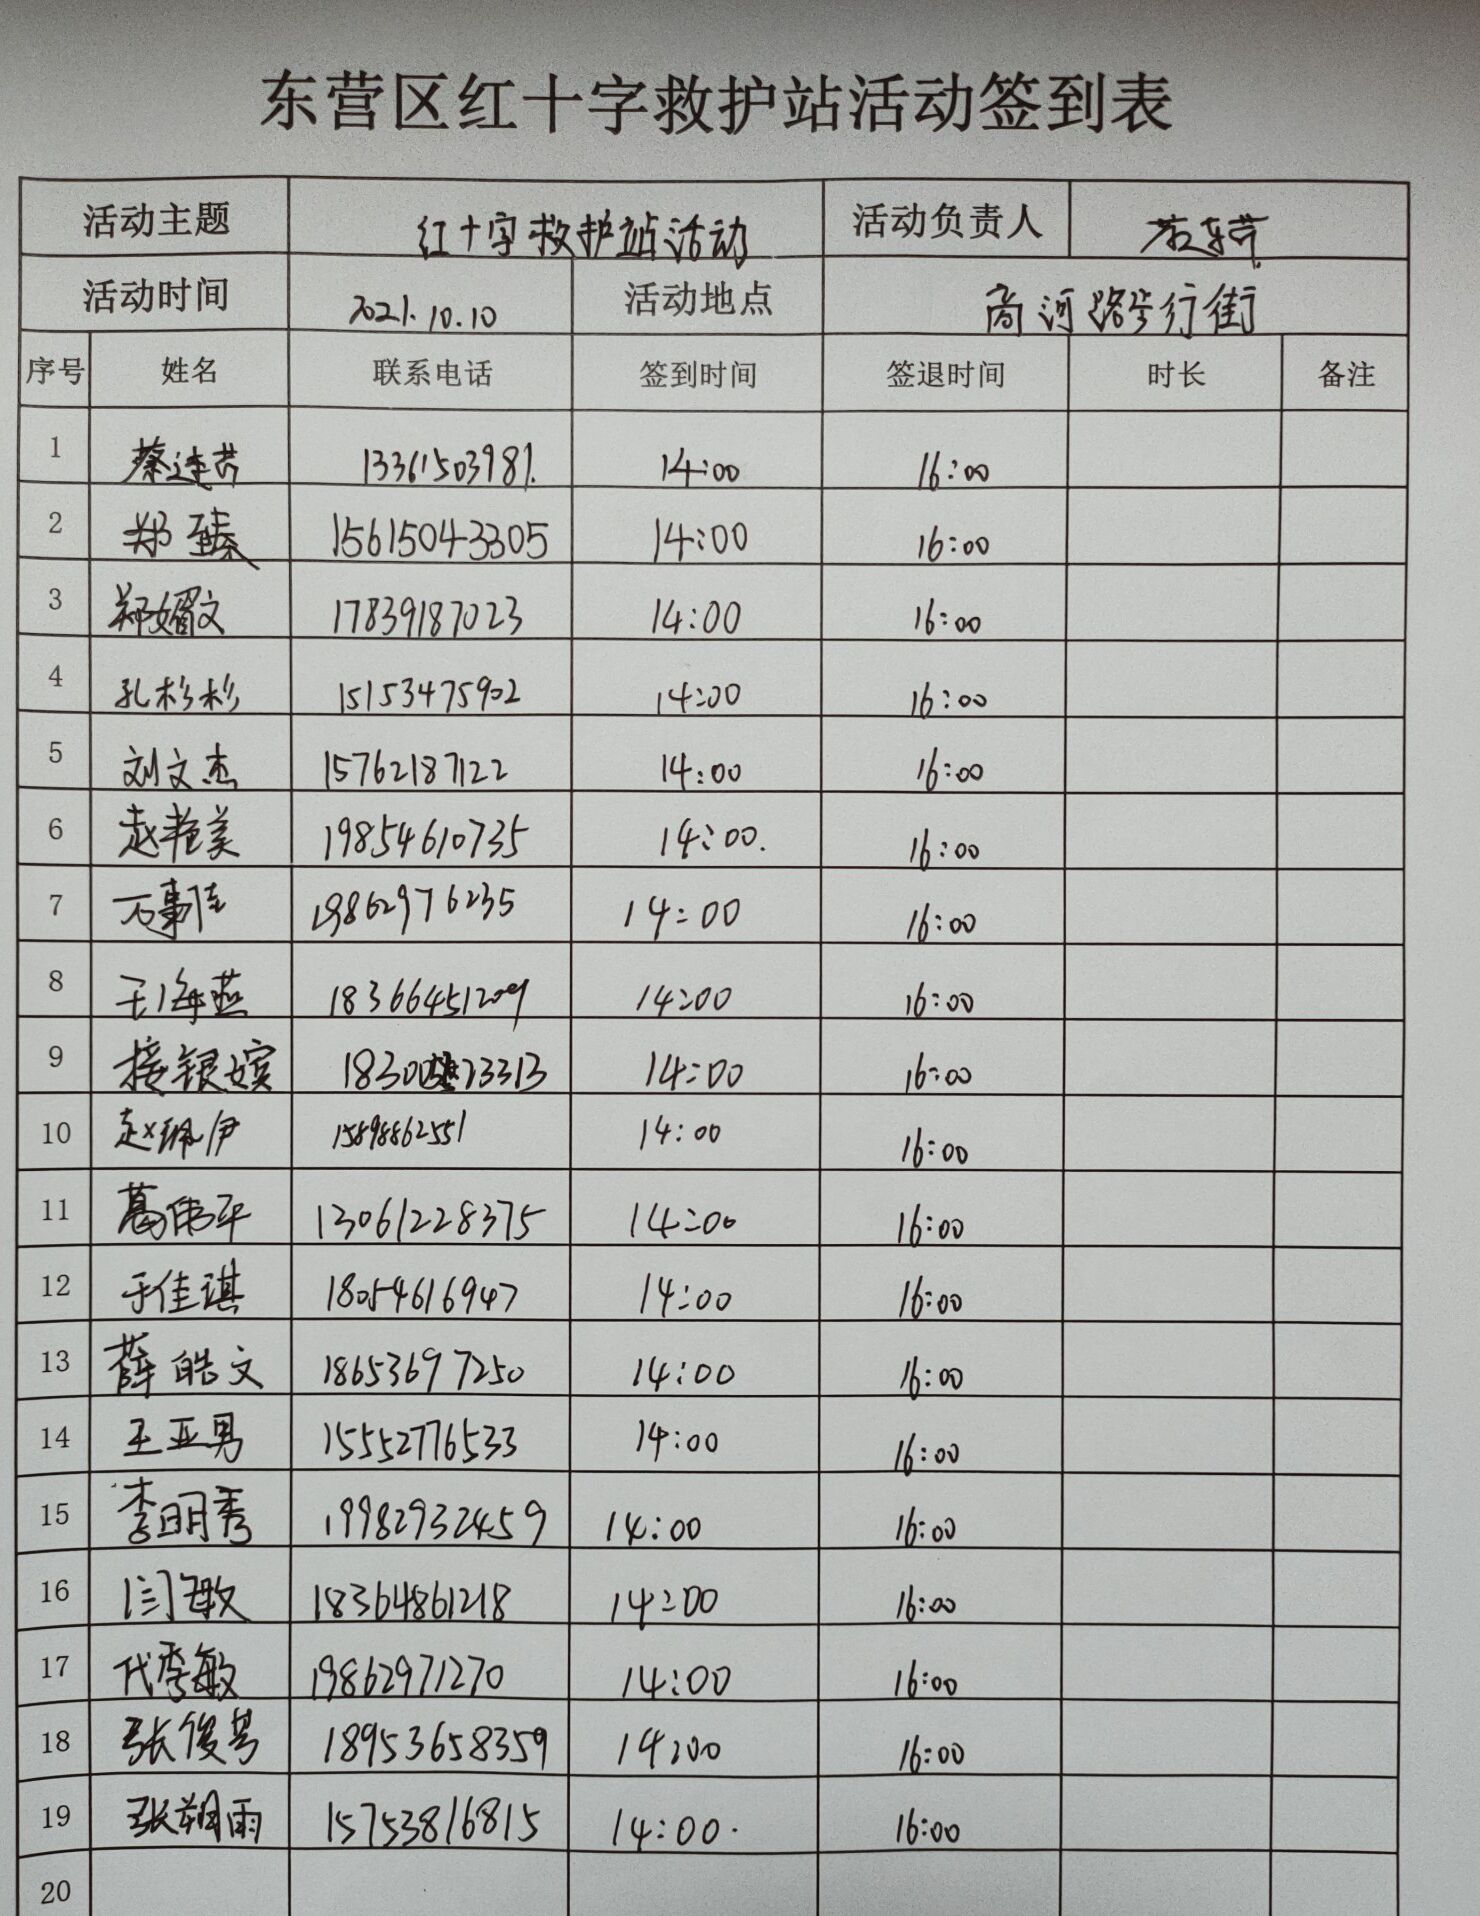 东营区红十字救护站活动签到表
活动主题 红十字救护站活动 活动负责人
活动时间 2021.10.10 活动地点 商河路步行街
序号 姓名 联系电话 签到时间 签退时间 时长 备注
1 13361503981. 14:00 16:00
2 郑臻 15615043305 14:00 16:00
3 郑媚文 17839187023 14:00 16:00
4 孔杉杉 15153475902 14:00 16:00
5 刘文杰 15762187122 14:00 16:00
6 赵艳美 19854610735 14:00. 16:00
7 19862976235 14:00 16:00
8 王海燕 18366451209 14:00 16:00
9 接银嫔 14:00 16:00
10 赵珮伊 15898862551 14:00 16:00
11 葛伟平 13061228375 14:00 16:00
12 于佳琪 18054616947 14:00 16:00
13 薛皓文 18653697250 14:00 16:00
14 王亚男 15552776533 14:00 16:00
15 李明秀 19982932459 14:00 16:00
16 闫敏 18364861218 14:00 16:00
17 代季敏 19862971270 14:00 16:00
18 18953658359 14:00 16:00
19 张翔雨 15753816815 14:00. 16:00
20